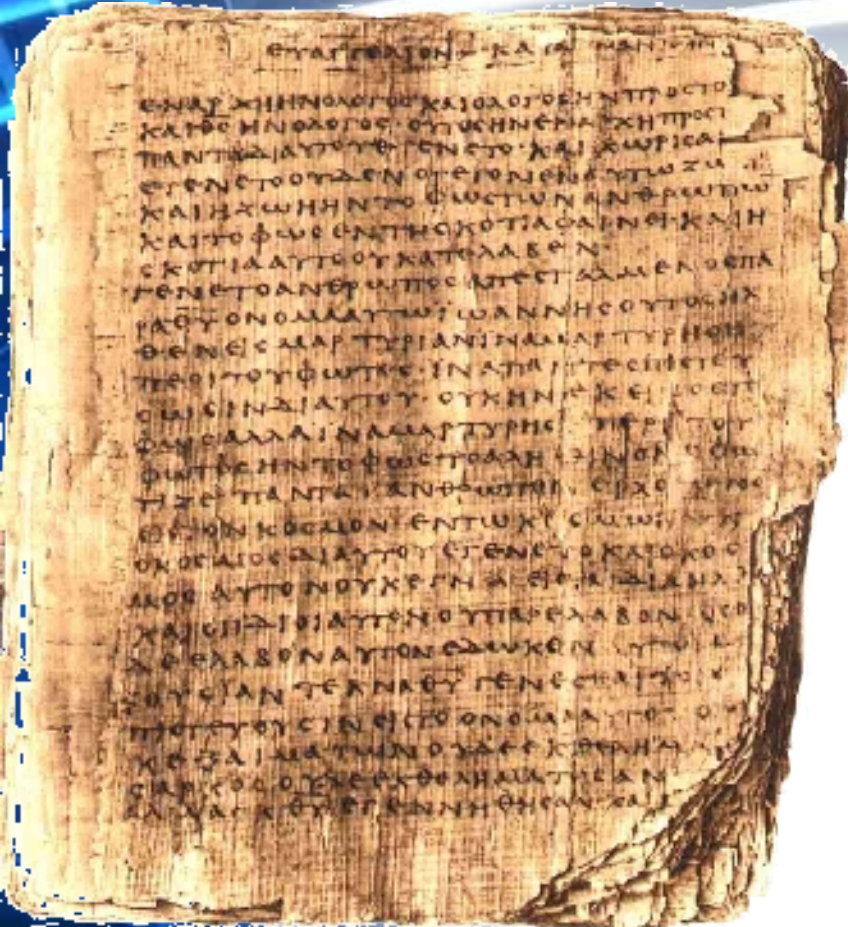 ΕΥΑΓΓΕΛΙΟΝ ΚΑΤΑ
ΕΝΑΡΧΗΗΝΟΛΟΓΟϹΚΑΙΟΛΟΓΟϹΗΝΠΡΟϹΤΟ
ΚΑΙΘ̅Ϲ̅ΗΝΟΛΟΓΟϹ·ΟΥΤΟϹΗΝΕΝΑΡΧΗΠΡΟϹΤ
ΠΑΝΤΑΔΙΑΥΤΟΥΕΓΕΝΕΤΟ·ΚΑΙΧΩΡΙϹΑ
ΕΓΕΝΕΤΟΟΥΔΕΝΟΓΕΓΟΝΕΝΕΝΑΥΤΩΖΩ
ΚΑΙΗΖΩΗΗΝΤΟΦΩϹΤΩΝΑΝΘΡΩΠΩ
ΚΑΙΤΟΦΩϹΕΝΤΗϹΚΟΤΙΑΦΑΙΝΕΙ·ΚΑΙΗ
ϹΚΟΤΙΑΑΥΤΟΟΥΚΑΤΕΛΑΒΕΝ·
ΓΕΝΕΤΟΑΝΘΡΩΠΟϹΑΠΕϹΤΑΛΜΕΝΟϹΠΑ
ΡΑΘ̅Υ̅ΟΝΟΜΑΑΥΤΩΙΩΑΝΝΗϹΟΥΤΟϹΗΛ
ΘΕΝΕΙϹΜΑΡΤΥΡΙΑΝΙΝΑΜΑΡΤΥΡΗϹΗ
ΠΕΡΙΤΟΥΦΩΤΟϹ·ΙΝΑΠΑΝΤΕϹΠΙϹΤΕΥ
ϹΩϹΙΝΔΙΑΥΤΟΥ·ΟΥΚΗΝΕΚΕΙΝΟϹΤΟ
ΦΩϹΑΛΛΑΙΝΑΜΑΡΤΥΡΗϹΗΠΕΡΙΤΟΥ
ΦΩΤΟϹΗΝΤΟΦΩϹΤΟΑΛΗΘΙΝΟΝΟΦΩ
ΤΙΖΕΙΠΑΝΤΑΑΝΘΡΩΠΟΝΕΡΧΟΜΕΝΟ
ΕΙϹΤΟΝΚΟϹΜΟΝ·ΕΝΤΩΚΟϹΜΩΗΝΚ
ΟΚΟϹΜΟϹΔΙΑΥΤΟΥΕΓΕΝΕΤΟΚΑΙΟΚΟϹ
ΜΟϹΑΥΤΟΝΟΥΚΕΓΝΩΕΙϹΤΑΙΔΙΑΗΛΘ
ΚΑΙΟΙΙΔΙΟΙΑΥΤΟΝΟΥΠΑΡΕΛΑΒΟΝ·ΟϹΟ
ΔΕΕΛΑΒΟΝΑΥΤΟΝΕΔΩΚΕΝΑΥΤΟΙϹ
ΞΟΥϹΙΑΝΤΕΚΝΑΘ̅Υ̅ΓΕΝΕϹΘΑΙΤΟΙϹ
ΠΙϹΤΕΥΟΥϹΙΝΕΙϹΤΟΟΝΟΜΑΑΥΤΟΥ·ΟΥ
ΚΕΞΑΙΜΑΤΩΝΟΥΔΕΕΚΘΕΛΗΜΑ
ϹΑΡΚΟϹΟΥΔΕΕΚΘΕΛΗΜΑΤΟϹΑΝ
ΑΛΛΑΕΚΘ̅Υ̅ΕΓΕΝΝΗΘΗϹΑΝ·ΚΑΙ